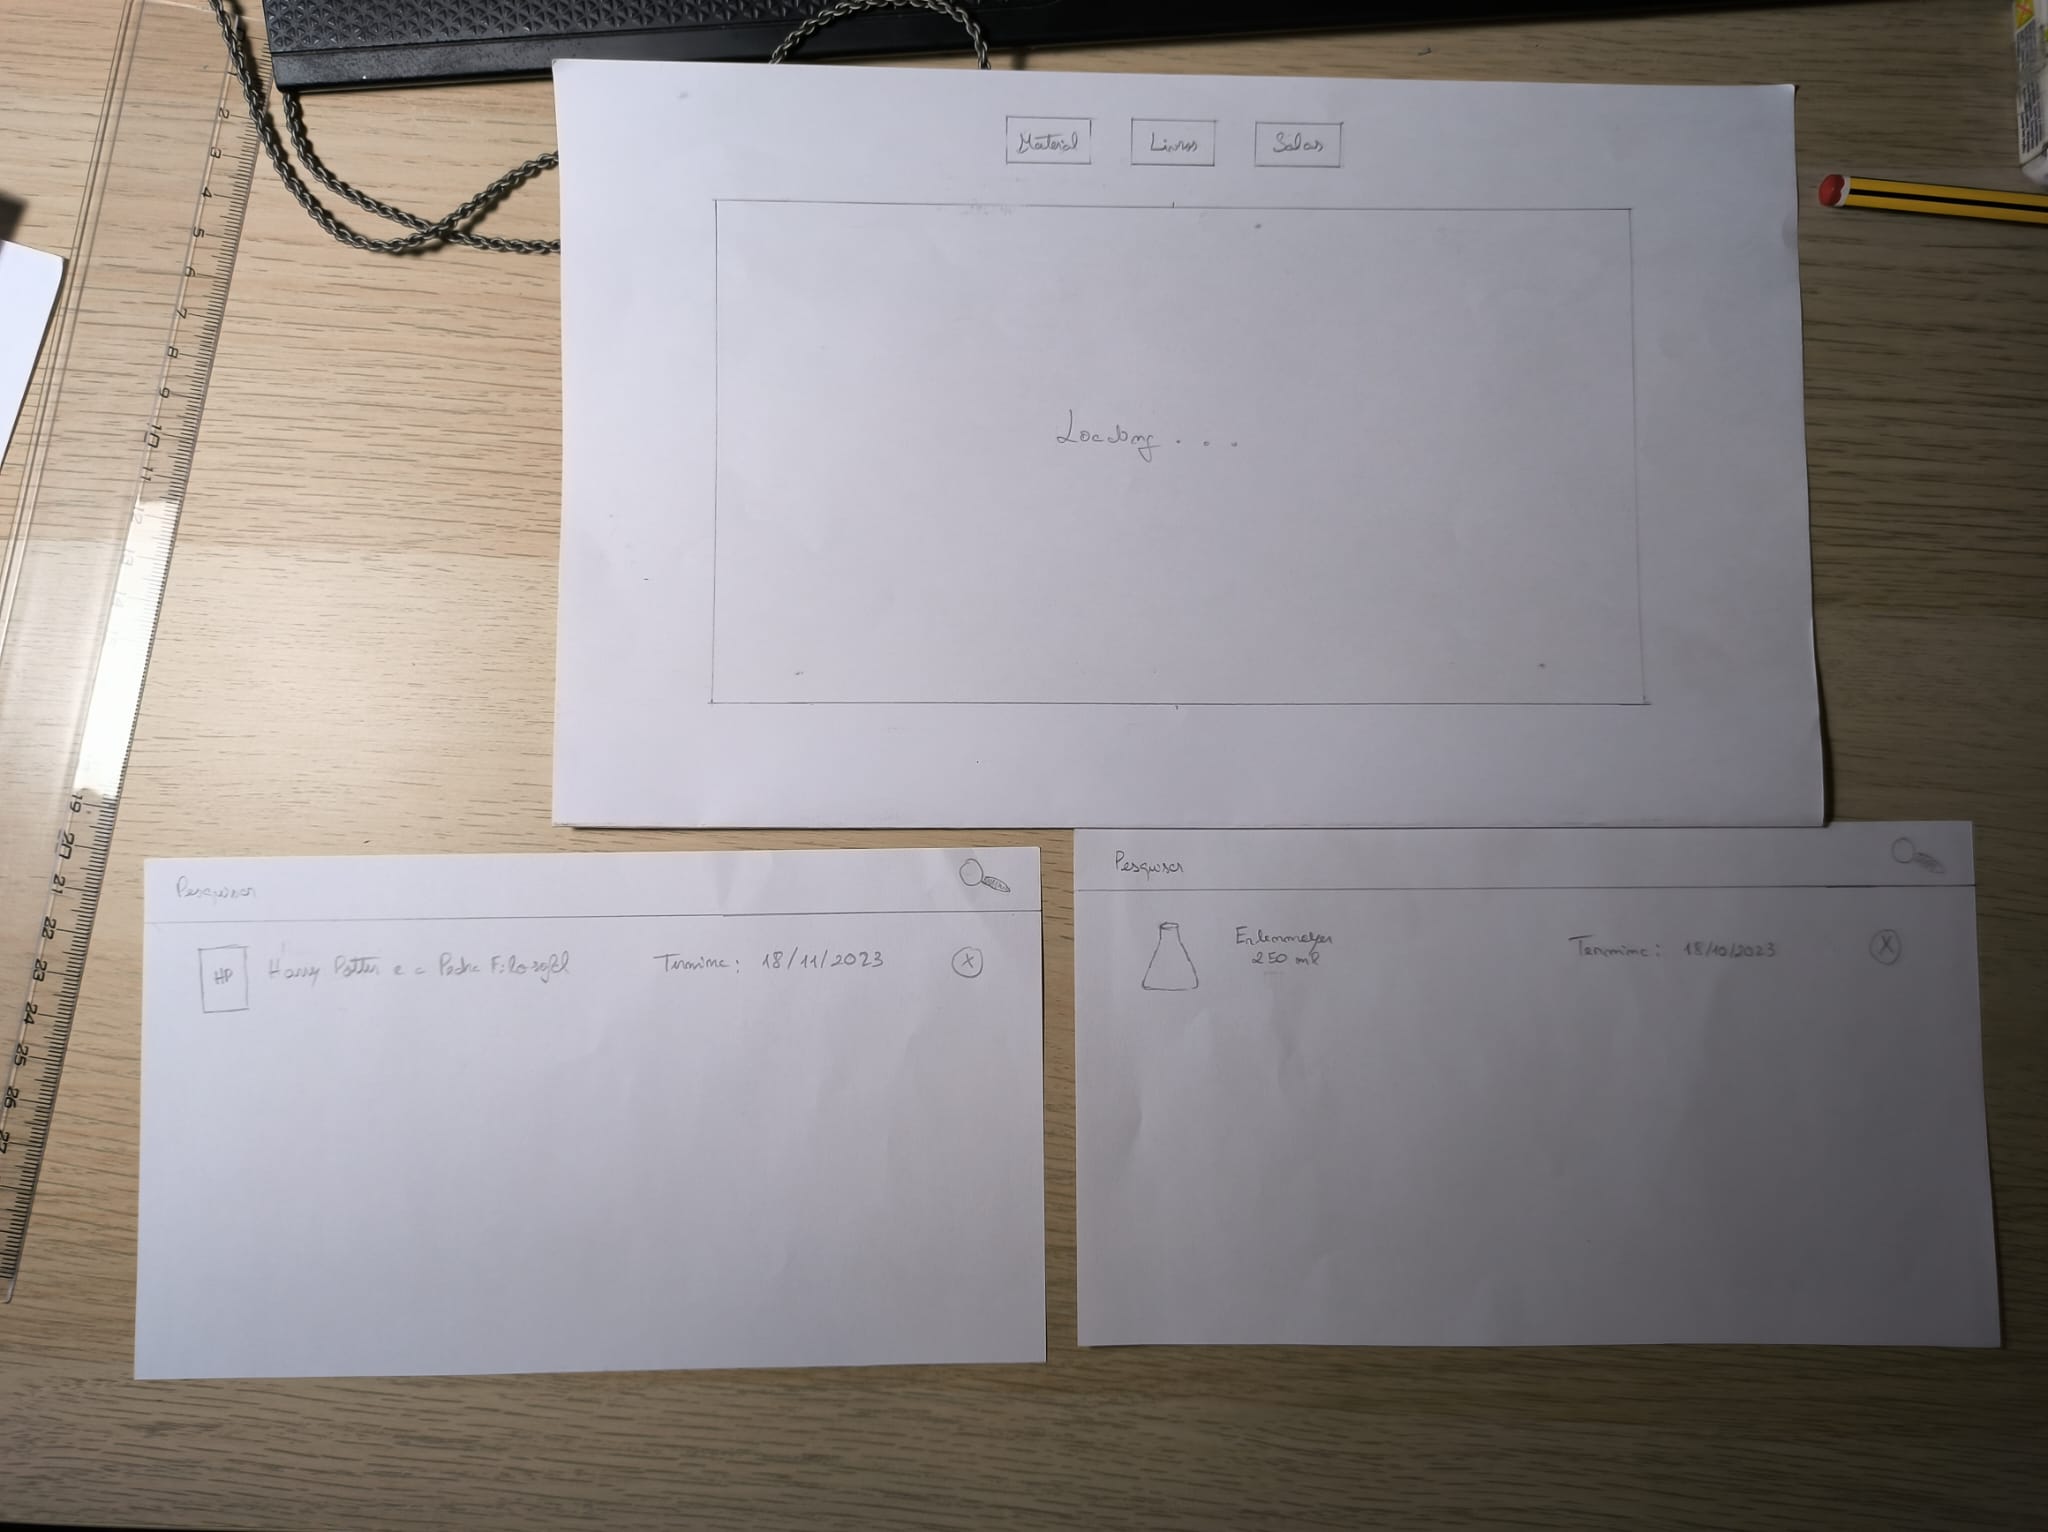 Material
Livros
Salas
Loading...
Pesquisar
HP
Harry Potter e a Pedra Filosofal
Termina: 18/11/2023
X
Pesquisar
Erlenmeyer
250 ml
Termina: 18/10/2023
X
2
3
4
5
6
7
8
9
10
11
12
13
14
19
20
21
22
23
24
25
26
27